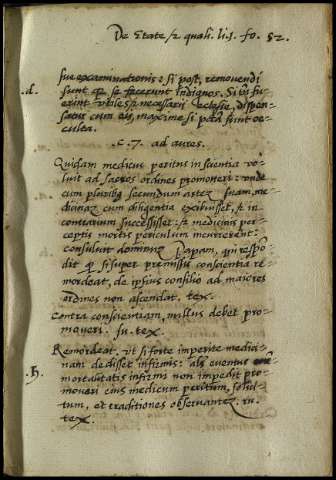 De Etate & quali. li. 1. fo. 52.
suæ examinationis: & si post, removendi
.d. sunt quia se fecerunt indignos. Si
erint utiles & necessarii Ecclesiæ, dispen-
satur cum eis, maxime si peccata sunt oc-
culta.
.c. 7. ad aures.
Quidam medicus peritus in scientia vo-
luit ad sacros ordines promoveri: unde
cum pluribus secundum artem suam me-
dicinam cum diligentia exibuisset, & in
contrarium successisset: & medicinis per-
ceptis mortis periculum incurrerent:
consuluit dominum Papam, qui respo-
dit quod si super premissis conscientia re-
mordeat, de ipsius consilio ad maiores
ordines non ascendat. tex.
Contra conscientiam, nullus debet pro-
moveri. in. tex.
Remordeat. ut si forte imperite medici-
.h. nam dedisset infirmis: alias eventus
mortalitatis infirmi non impedit pro-
moveri eius medicum peritum, solici-
tum, et traditiones observantem. in.
tex.